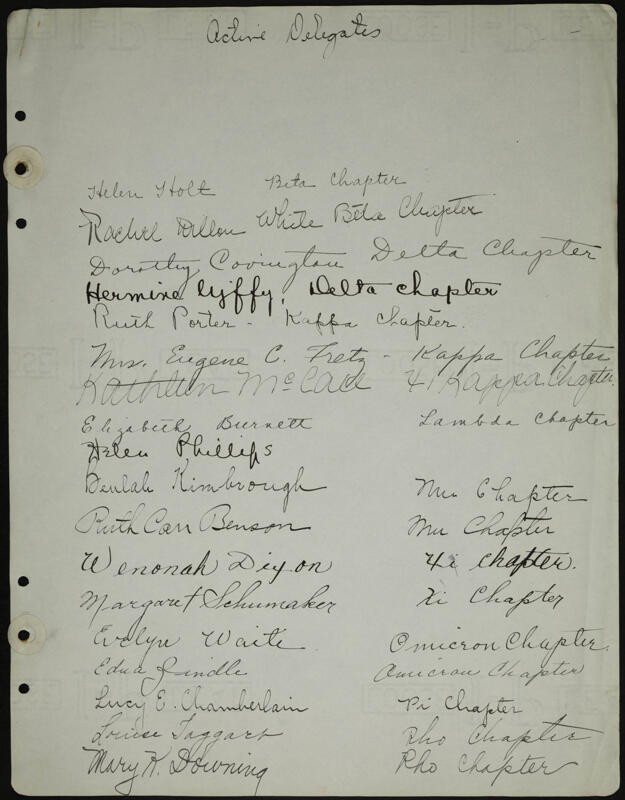 Active Delegates
Helen Holt Beta Chapter
Rachel Dillon White Beta Chapter
Dorothy Covington Delta Chapter
Hermine Delta chapter
Ruth Porter - Kappa Chapter.
Mrs. Eugene C. Fretz - Kappa Chapter
Kathleen McCall Kappa Chapter.
Elizabeth Burnett Lambda Chapter
Helen Phillips
Beulah Kimbrough Mu Chapter
Ruth Carr Benson Mu Chapter
Wenonah Dixon Xi chapter.
Margaret Schumaker Xi Chapter
Evelyn Waite Omicron Chapter.
Edna Omicron Chapter
Lucy E. Chamberlain Pi Chapter
Louise Taggart Rho Chapter
Mary K. Downing Rho Chapter